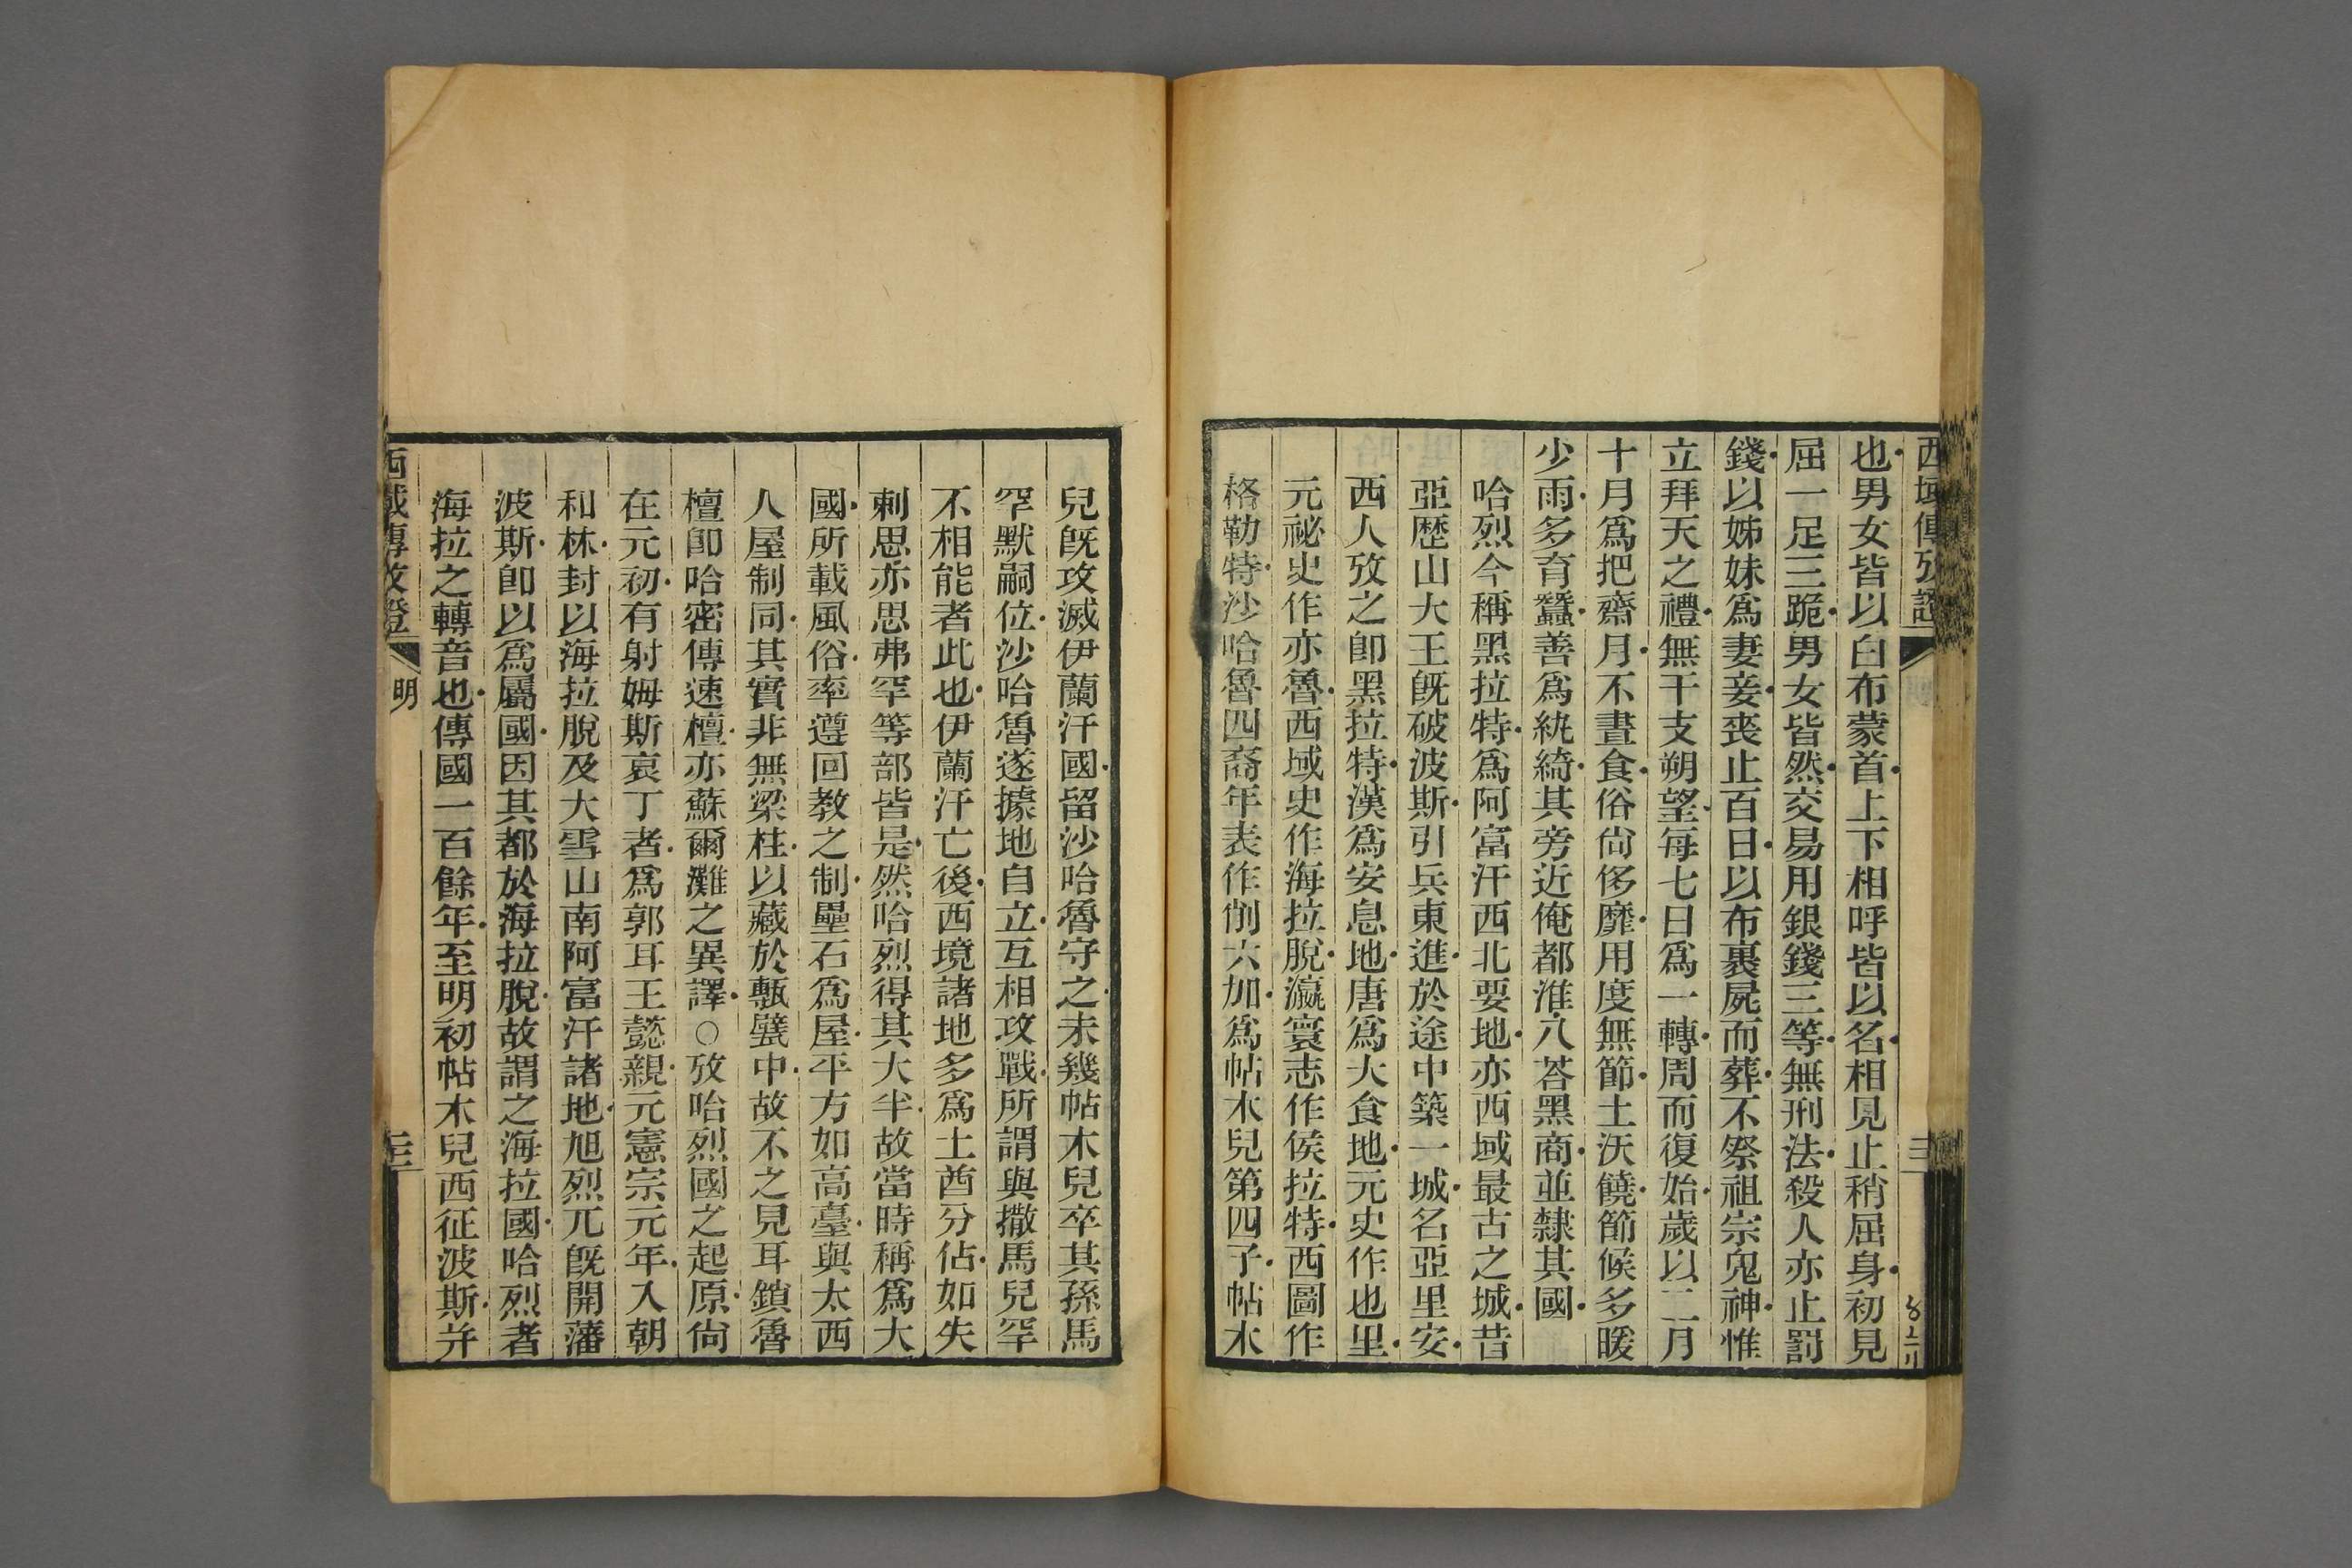 西域傳攷證
三
也男女皆以白布蒙首上下相呼皆以名相見止稍屈身初見
屈一足三跪男女皆然交易用銀錢三等無刑法殺人亦止罰
錢以姊妹為妻妾喪止百日以布裹屍而葬不祭祖宗鬼神惟
立拜天之禮無干支朔望每七日為一轉周而復始歲以二月
十月為把齋月不晝食俗尚侈靡用度無節土沃饒節候多暖
少雨多育蠶善為紈綺其旁近俺都淮八荅黑商並隸其國
哈烈今稱黑拉特為阿富汗西北要地亦西域最古之城昔
亞歷山大王旣破波斯引兵東進於途中築一城名亞里安
西人攷之卽黑拉特漢為安息地唐為大食地元史作也里
元祕史作亦魯西域史作海拉脫瀛寰志作侯拉特西圖作
格勒特沙哈魯四裔年表作削六加為帖木兒第四子帖木
兒旣攻滅伊蘭汗國留沙哈魯守之未幾帖木兒卒其孫馬
罕默嗣位沙哈魯遂據地自立互相攻戰所謂與撒馬兒罕
不相能者此也伊蘭汗亡後西境諸地多為土酋分佔如失
剌思亦思弗罕等部皆是然哈烈得其大半故當時稱為大
國所載風俗率遵回教之制壘石為屋平方如高臺與太西
人屋制同其實非無梁柱以藏於甎甓中故不之見耳鎖魯
檀卽哈密傳速檀亦蘇爾灘之異譯○攷哈烈國之起原尚
在元初有射姆斯哀丁者為郭耳王懿親元憲宗元年入朝
和林封以海拉脫及大雪山南阿富汗諸地旭烈兀旣開藩
波斯卽以為屬國因其都於海拉脫故謂之海拉國哈烈者
海拉之轉音也傳國一百餘年至明初帖木兒西征波斯幷
西域傳攷證
明
三